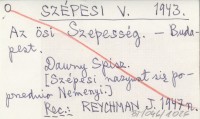 SZÉPESI V. 1943.
Az ősi Szepesség. - Buda-
pest.
Dawny Spisz.
[Szépesi nazywał się po-
przednio Neményi.]
Rec.: REYCHMAN J. 1947 n.